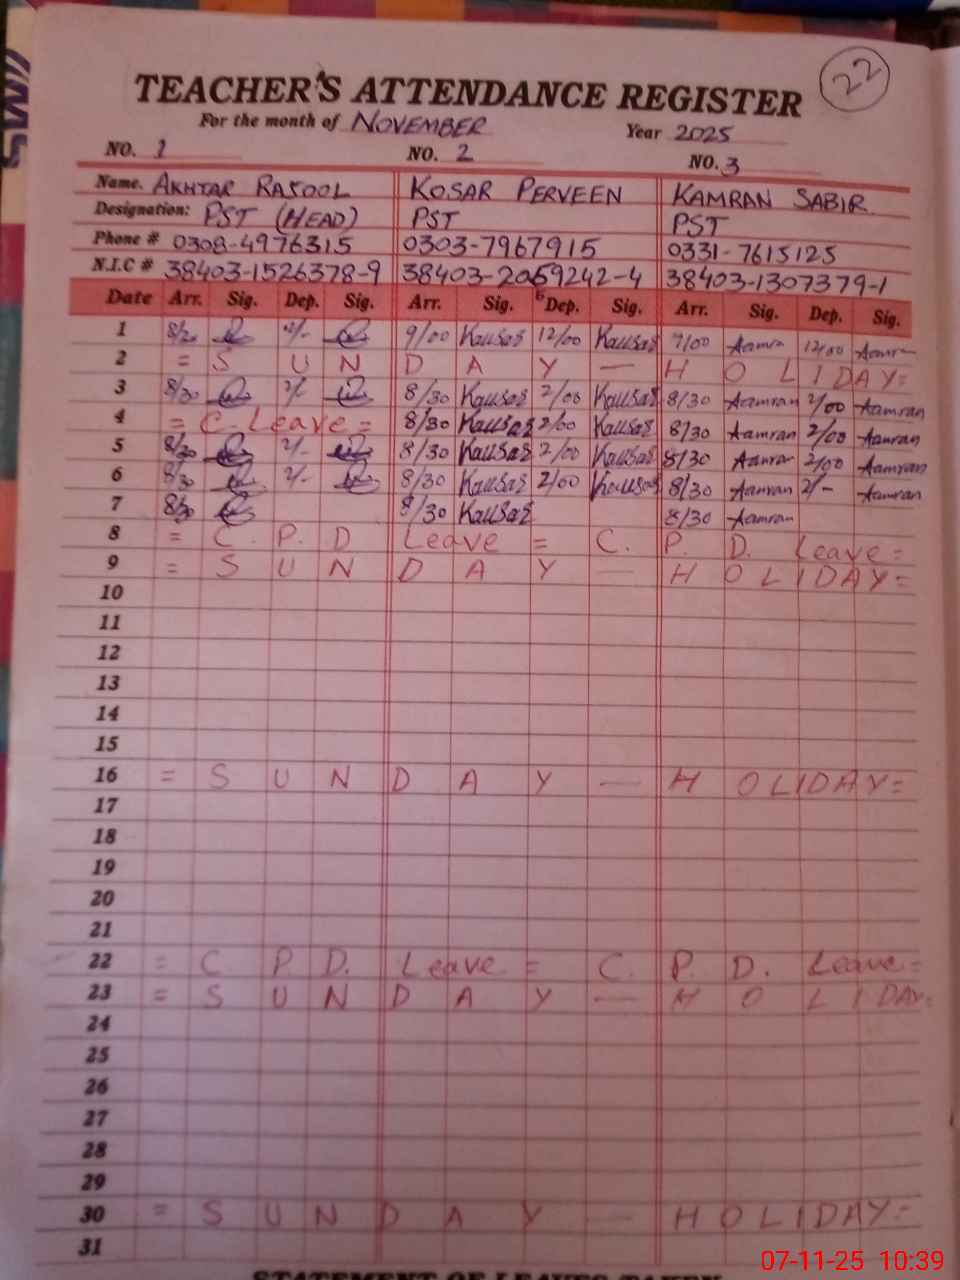 SWI
22
TEACHER'S ATTENDANCE REGISTER
For the month of NOVEMBER Year 2025
NO. 1 NO. 2 NO. 3
Name. AKHTAR RASOOL KOSAR PERVEEN KAMRAN SABIR
Designation: PST (HEAD) PST PST
Phone # 0308-4976315 0303-7967915 0331-7615125
N.I.C # 38403-1526378-9 38403-2059242-4 38403-1307379-1
Date Arr. Sig. Dep. Sig. Arr. Sig. Dep. Sig. Arr. Sig. Dep. Sig.
1 8/30 2/- 9/00 Kausar 12/00 Kausar 9/00 Aamran 12/00 Aamran
2 = S U N D A Y — H O L I D A Y =
3 8/30 2/- 8/30 Kausar 2/00 Kausar 8/30 Aamran 2/00 Aamran
4 = C. Leave = 8/30 Kausar 2/00 Kausar 8/30 Aamran 2/00 Aamran
5 8/30 2/- 8/30 Kausar 2/00 Kausar 8/30 Aamran 2/00 Aamran
6 8/30 2/- 8/30 Kausar 2/00 Kausar 8/30 Aamran 2/- Aamran
7 8/30 8/30 Kausar 8/30 Aamran
8 = C. P. D Leave = C. P. D. Leave =
9 = S U N D A Y — H O L I D A Y =
10
11
12
13
14
15
16 = S U N D A Y — H O L I D A Y =
17
18
19
20
21
22 = C P D. Leave = C. P. D. Leave =
23 = S U N D A Y — H O L I D A Y =
24
25
26
27
28
29
30 = S U N D A Y — H O L I D A Y =
31
STATEMENT OF LEAVES TAKEN
07-11-25 10:39